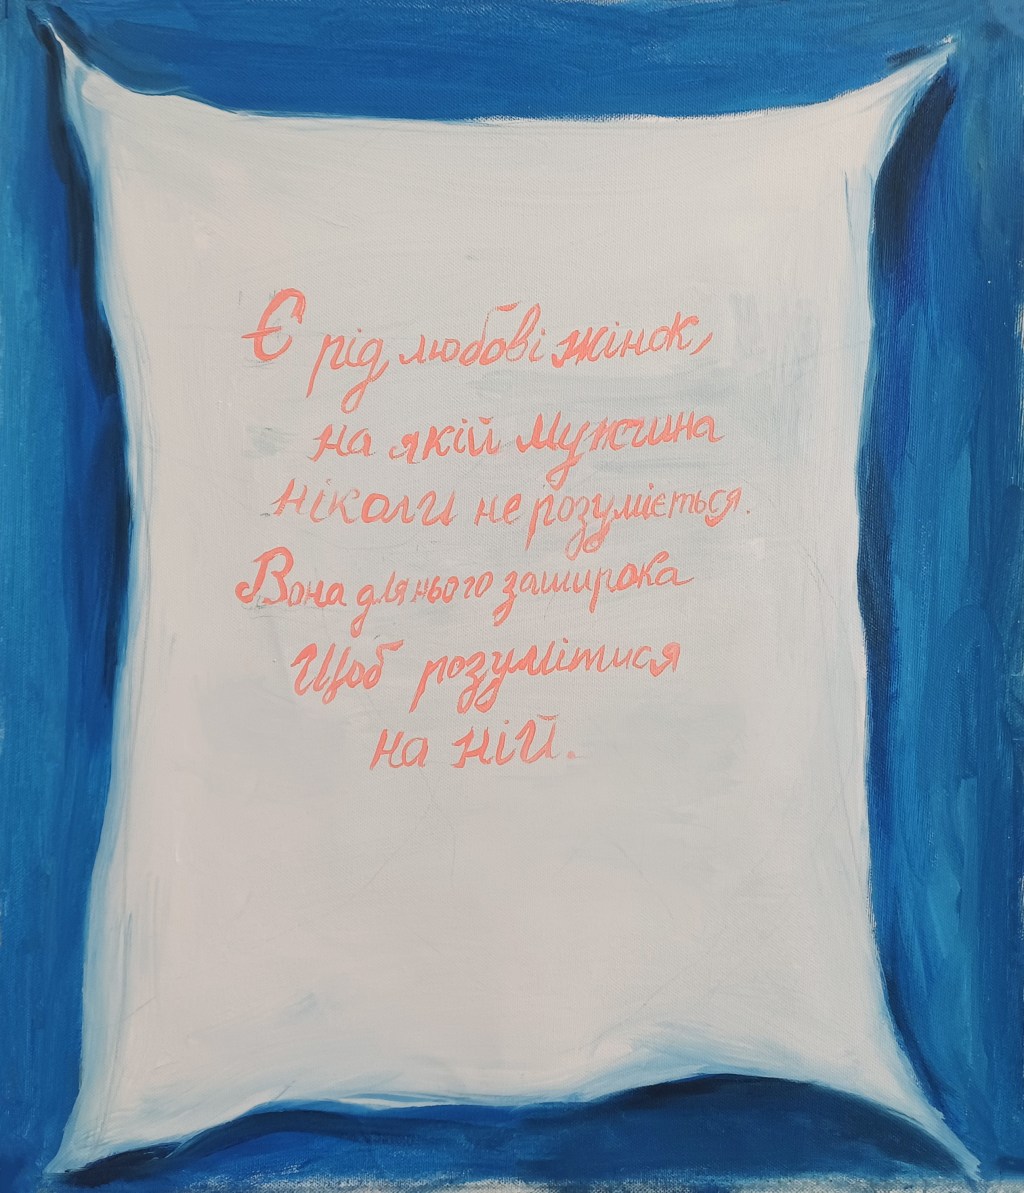 Є рід любові жінок,
на якій мужчина
ніколи не розуміється.
Вона для нього заширока
Щоб розумітися
на ній.